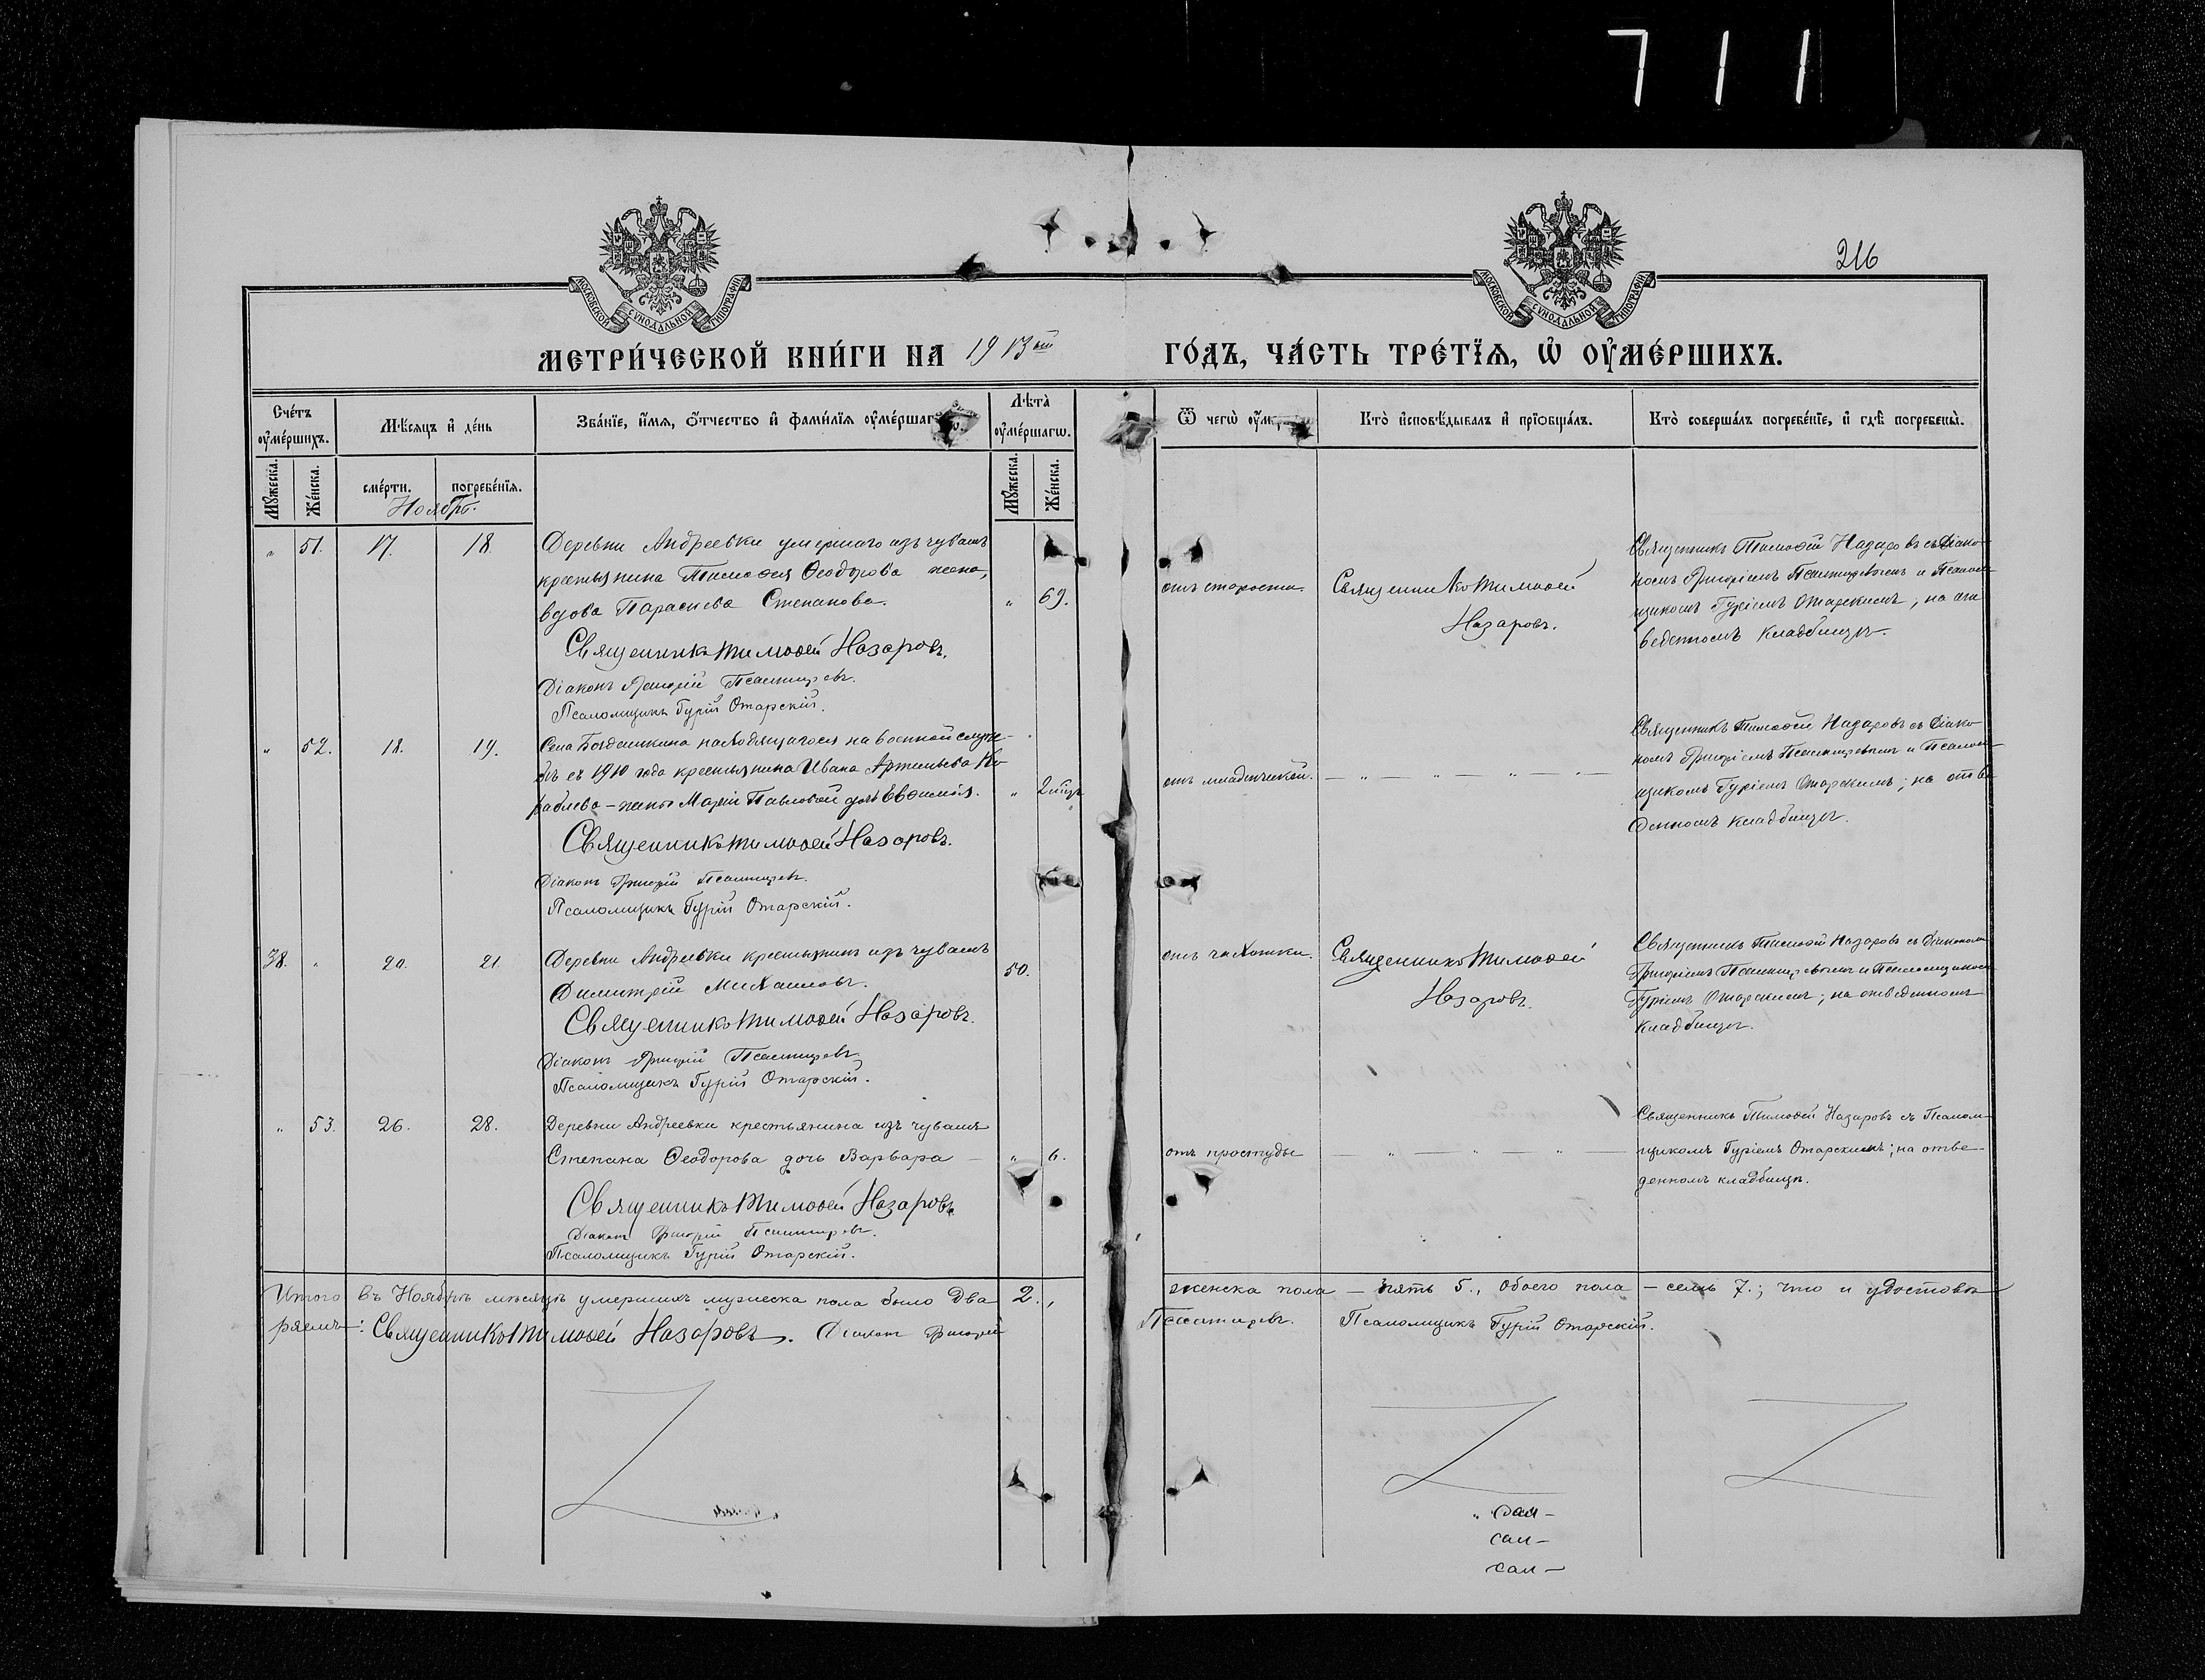 711
216
МОСКОВСКОЙ СѴНОДАЛЬНОЙ ТИПОГРАФІИ
МОСКОВСКОЙ СѴНОДАЛЬНОЙ ТИПОГРАФІИ
МЕТРИ́ЧЕСКОЙ КНИ́ГИ НА 1913ый ГО́ДЪ, ЧА́СТЬ ТРЕ́ТІѦ, Ѡ ОУМЕ́РШИХЪ.
Сче́тъ оумершихъ.
Мꙋжеска.
Же́нска.
Мѣсяцъ и де́нь
сме́рти.
погребе́нїя.
Зва́нїе, и҆́мя, ѻ҆́тчество и҆ фами́лїя оумершагѡ.
Лѣта̀ оумершагѡ.
Мꙋжеска.
Же́нска.
Ѿ чегѡ̀
Кто̀ и҆сповѣ́дывалъ и҆ прїѡбща́лъ.
Кто̀ соверша́лъ погребе́нїе, и҆ гдѣ̀ погребены̀.
Ноябрь.
„ 51. 17. 18.
Деревни Андреевки умершаго изъ чувашъ
крестьянина Тимоѳея Ѳеодорова жена,
вдова Параскева Степанова. „ 69.
Священникъ Тимоѳей Назаровъ.
Діаконъ Григорій
Псаломщикъ Гурій Отарскій.
отъ старости.
Священникъ Тимоѳей
Назаровъ.
Священникъ Тимоѳей Назаровъ съ Діако-
номъ Григоріемъ и Псалом-
щикомъ Гуріемъ Отарскимъ; на от-
веденномъ кладбищѣ.
„ 52. 18. 19.
Села находящагося на военной служ-
бѣ съ 1910 года крестьянина Ивана Артемьева Ко-
раблева – жены Маріи Павловой дочь Евѳимія. „
Священникъ Тимоѳей Назаровъ.
Діаконъ Григорій
Псаломщикъ Гурій Отарскій.
отъ младенческой.
— „ — „ — „ — „ —
Священникъ Тимоѳей Назаровъ съ Діако-
номъ Григоріемъ и Псалом-
щикомъ Гуріемъ Отарскимъ; на отве-
денномъ кладбищѣ.
38. „ 20. 21.
Деревни Андреевки крестьянинъ изъ чувашъ
Димитрій Михаиловъ. 50.
Священникъ Тимоѳей Назаровъ.
Діаконъ Григорій
Псаломщикъ Гурій Отарскій.
отъ чахотки.
Священникъ Тимоѳей
Назаровъ.
Священникъ Тимоѳей Назаровъ съ Діакономъ
Григоріемъ и Псаломщикомъ
Гуріемъ Отарскимъ; на отведенномъ
кладбищѣ.
„ 53. 26. 28.
Деревни Андреевки крестьянина изъ чувашъ
Степана Ѳеодорова дочь Варвара — „ 6.
Священникъ Тимоѳей Назаровъ.
Діаконъ Григорій
Псаломщикъ Гурій Отарскій.
отъ простуды
— „ — „ — „ —
Священникъ Тимоѳей Назаровъ съ Псалом-
щикомъ Гуріемъ Отарскимъ; на отве-
денномъ кладбищѣ.
Итого въ Ноябрѣ мѣсяцѣ умершихъ мужеска пола было два 2., женска пола — пять 5., обоего пола — семь 7.; что и удостовѣ-
ряемъ: Священникъ Тимоѳей Назаровъ. Діаконъ Григорій Псаломщикъ Гурій Отарскій.